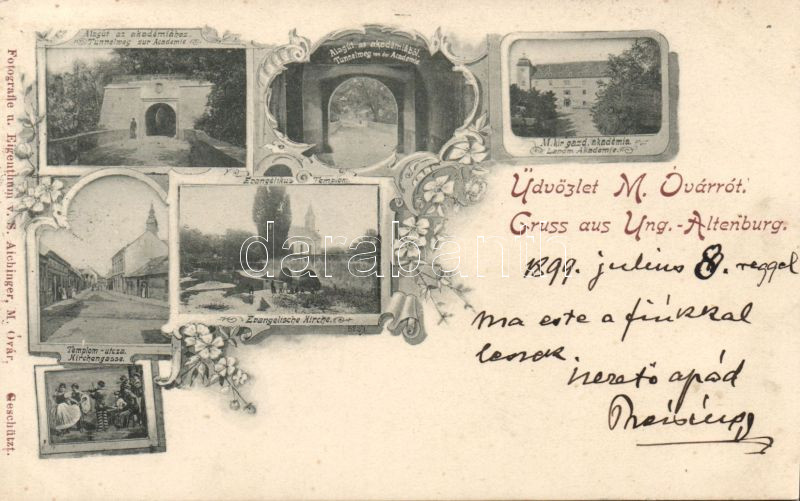 Alagút az akadémiához.
Tunnelweg zur Academie
Alagút az akadémiából.
Tunnelweg von der Academie
M. kir. gazd. akadémia.
Landw. Akademie.
Evangélikus Templom.
Evangelische Kirche.
Templom-utcza.
Kirchengasse.
Üdvözlet M. Óvárról.
Gruss aus Ung.-Altenburg.
1899. július 8. reggel
ma este a fiúkkal
leszek.
szerető apád
Fotografie u. Eigenthum v. S. Aichinger, M. Óvár, Geschützt.
darabanth